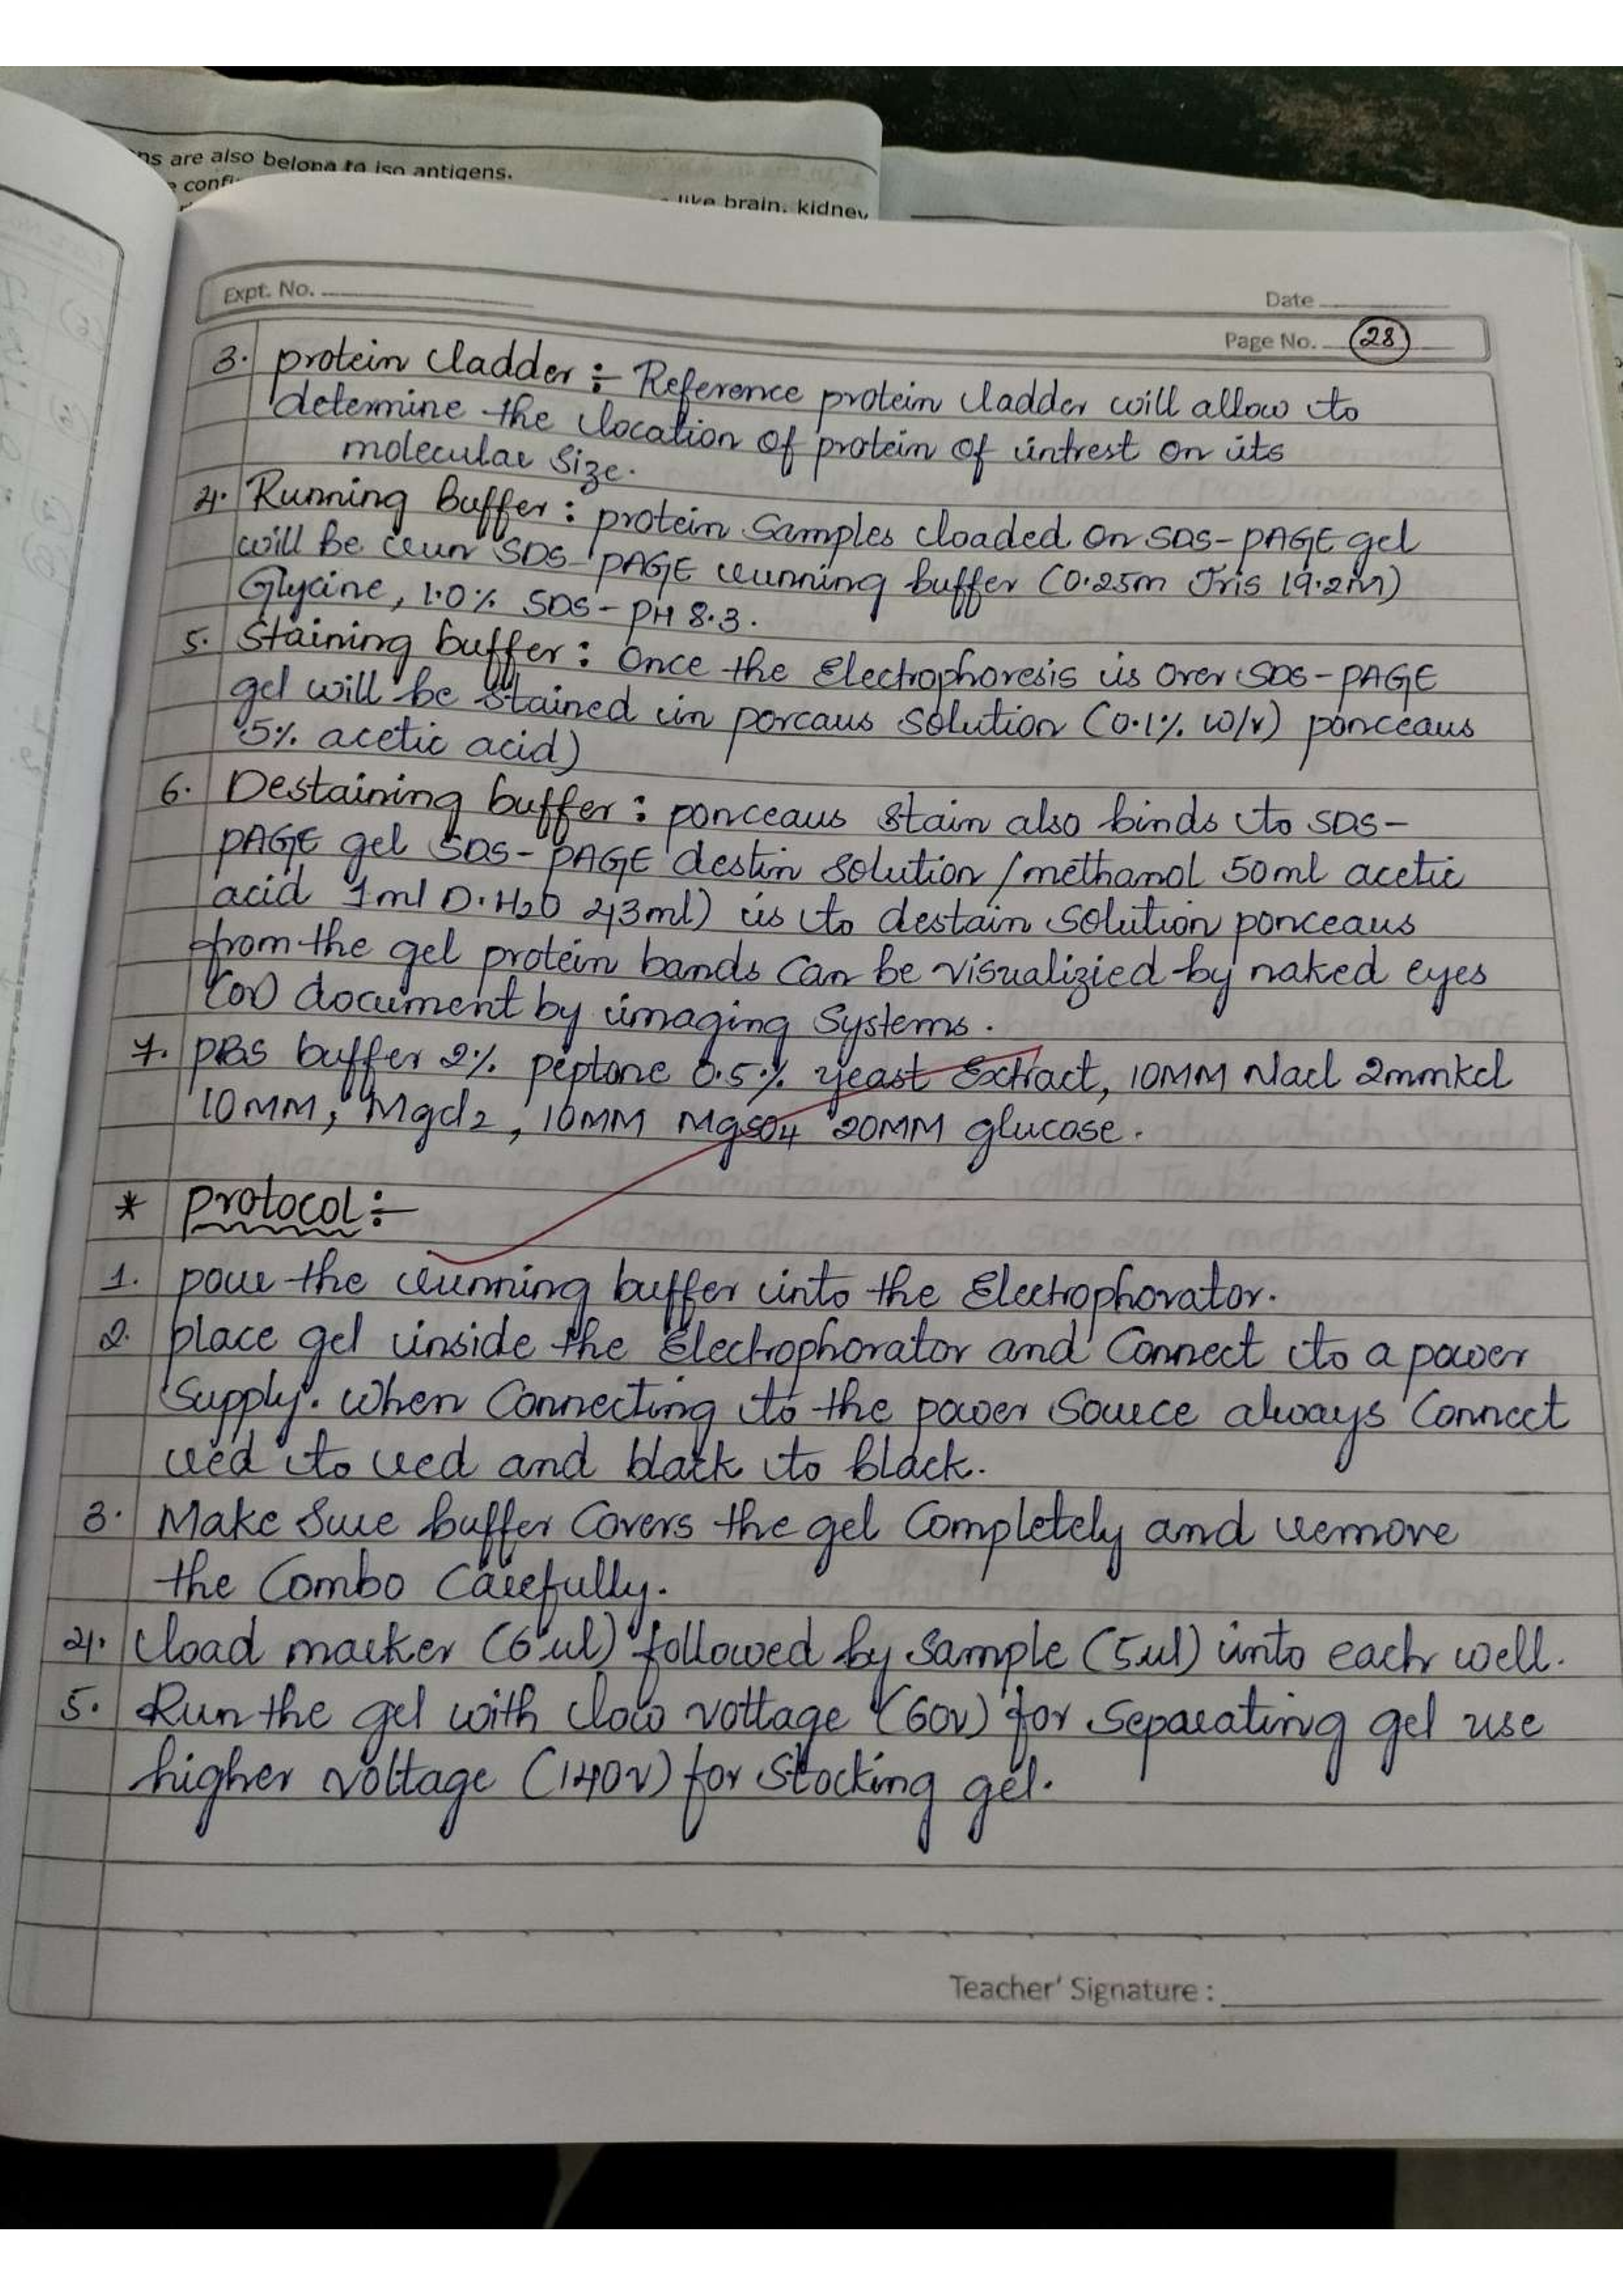 ns are also belong to iso antigens.
like brain, kidney
Expt. No.
Date
Page No. 28
3. protein ladder :- Reference protein ladder will allow to
determine the location of protein of intrest on its
molecular Size.
4. Running buffer : protein Samples loaded on SDS-PAGE gel
will be run SDS-PAGE running buffer (0.25m Tris 19.2M)
Glycine, 1.0% SDS - PH 8.3.
5. Staining buffer : Once the Electrophoresis is over SDS-PAGE
gel will be stained in porcaus solution (0.1% w/v) ponceaus
5% acetic acid)
6. Destaining buffer : ponceaus stain also binds to SDS-
PAGE gel SDS-PAGE destin solution / methanol 50ml acetic
acid 1ml D.H2O 43ml) is to destain solution ponceaus
from the gel protein bands can be visualizied by naked eyes
(or) document by imaging Systems.
7. PBS buffer 2% peptone 0.5% yeast Extract, 10MM Nacl 2mmkcl
10MM, Mgcl2, 10MM MgSO4 20MM glucose.
* protocol :-
1. pour the running buffer into the Electrophorator.
2. place gel inside the Electrophorator and Connect to a power
Supply. when Connecting to the power Source always Connect
red to red and black to black.
3. Make Sure buffer Covers the gel Completely and remove
the Combo Carefully.
4. load marker (6ul) followed by sample (5ul) into each well.
5. Run the gel with low voltage (60v) for Separating gel use
higher voltage (140v) for Stocking gel.
Teacher' Signature :